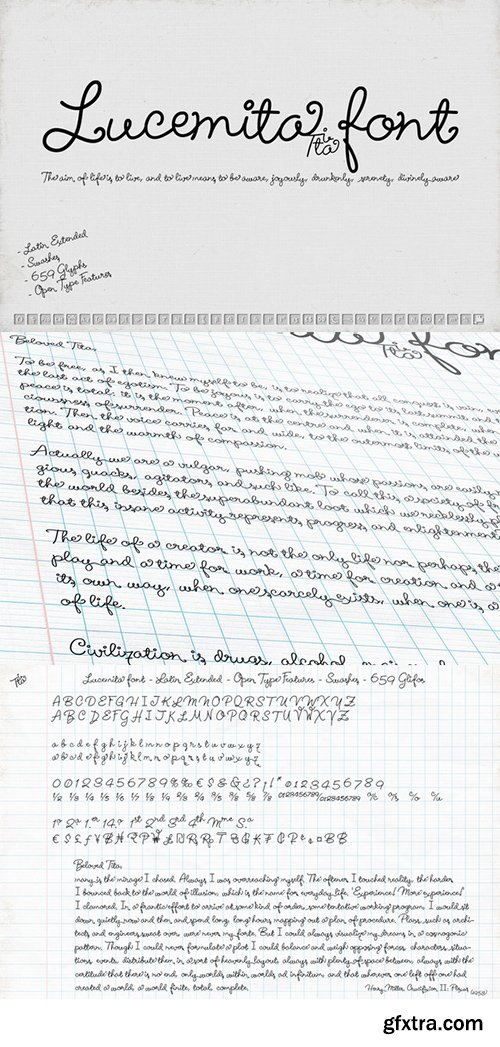 Lucemita font
Tita
The aim of life is to live, and to live means to be aware, joyously, drunkenly, serenely, divinely aware
- Latin Extended
- Swashes
- 659 Glyphs
- Open Type Features
Beloved Tita,
To be free, as I then knew myself to be, is to realize that all conquest is vain,
the last act of egotism. To be joyous is to carry the ego to its last summit and
peace is total: it is the moment after, when the surrender is complete, when
ciousness of surrender. Peace is at the centre and when it is attained the
tion. Then the voice carries far and wide, to the outermost limits of the
light and the warmth of compassion.
Actually we are a vulgar, pushing mob whose passions are easily
gious quacks, agitators and such like. To call this a society of
the world besides the superabundant loot which we recklessly
that this insane activity represents progress and enlightenment
The life of a creator is not the only life nor perhaps the
play and a time for work, a time for creation and a
its own way, when one scarcely exists, when one is a
of life.
Civilization is drugs, alcohol,
Tita
Lucemita font - Latin Extended - Open Type Features - Swashes - 659 Glifos
A B C D E F G H I J K L M N O P Q R S T U V W X Y Z
A B C D E F G H I J K L M N O P Q R S T U V W X Y Z
a b c d e f g h i j k l m n o p q r s t u v w x y z
a b c d e f g h i j k l m n o p q r s t u v w x y z
1st 2nd 3rd 4th Mme S.a
Beloved Tita,
many is the mirage I chased. Always I was overreaching myself. The oftener I touched reality, the harder
I bounced back to the world of illusion, which is the name for everyday life. 'Experience! More experience!'
I clamored. In a frantic effort to arrive at some kind of order, some tentative working program, I would sit
down quietly now and then and spend long, long hours mapping out a plan of procedure. Plans, such as archi-
tects and engineers sweat over, were never my forte. But I could always visualize my dreams in a cosmogonic
pattern. Though I could never formulate a plot I could balance and weigh opposing forces, characters, situa-
tions, events, distribute them in a sort of heavenly lay-out, always with plenty of space between, always with the
certitude that there is no end, only worlds within worlds ad infinitum, and that wherever one left off one had
created a world, a world finite, total, complete.
Henry Miller, Crucifixion II: Plexus (1953)
gfxtra.com